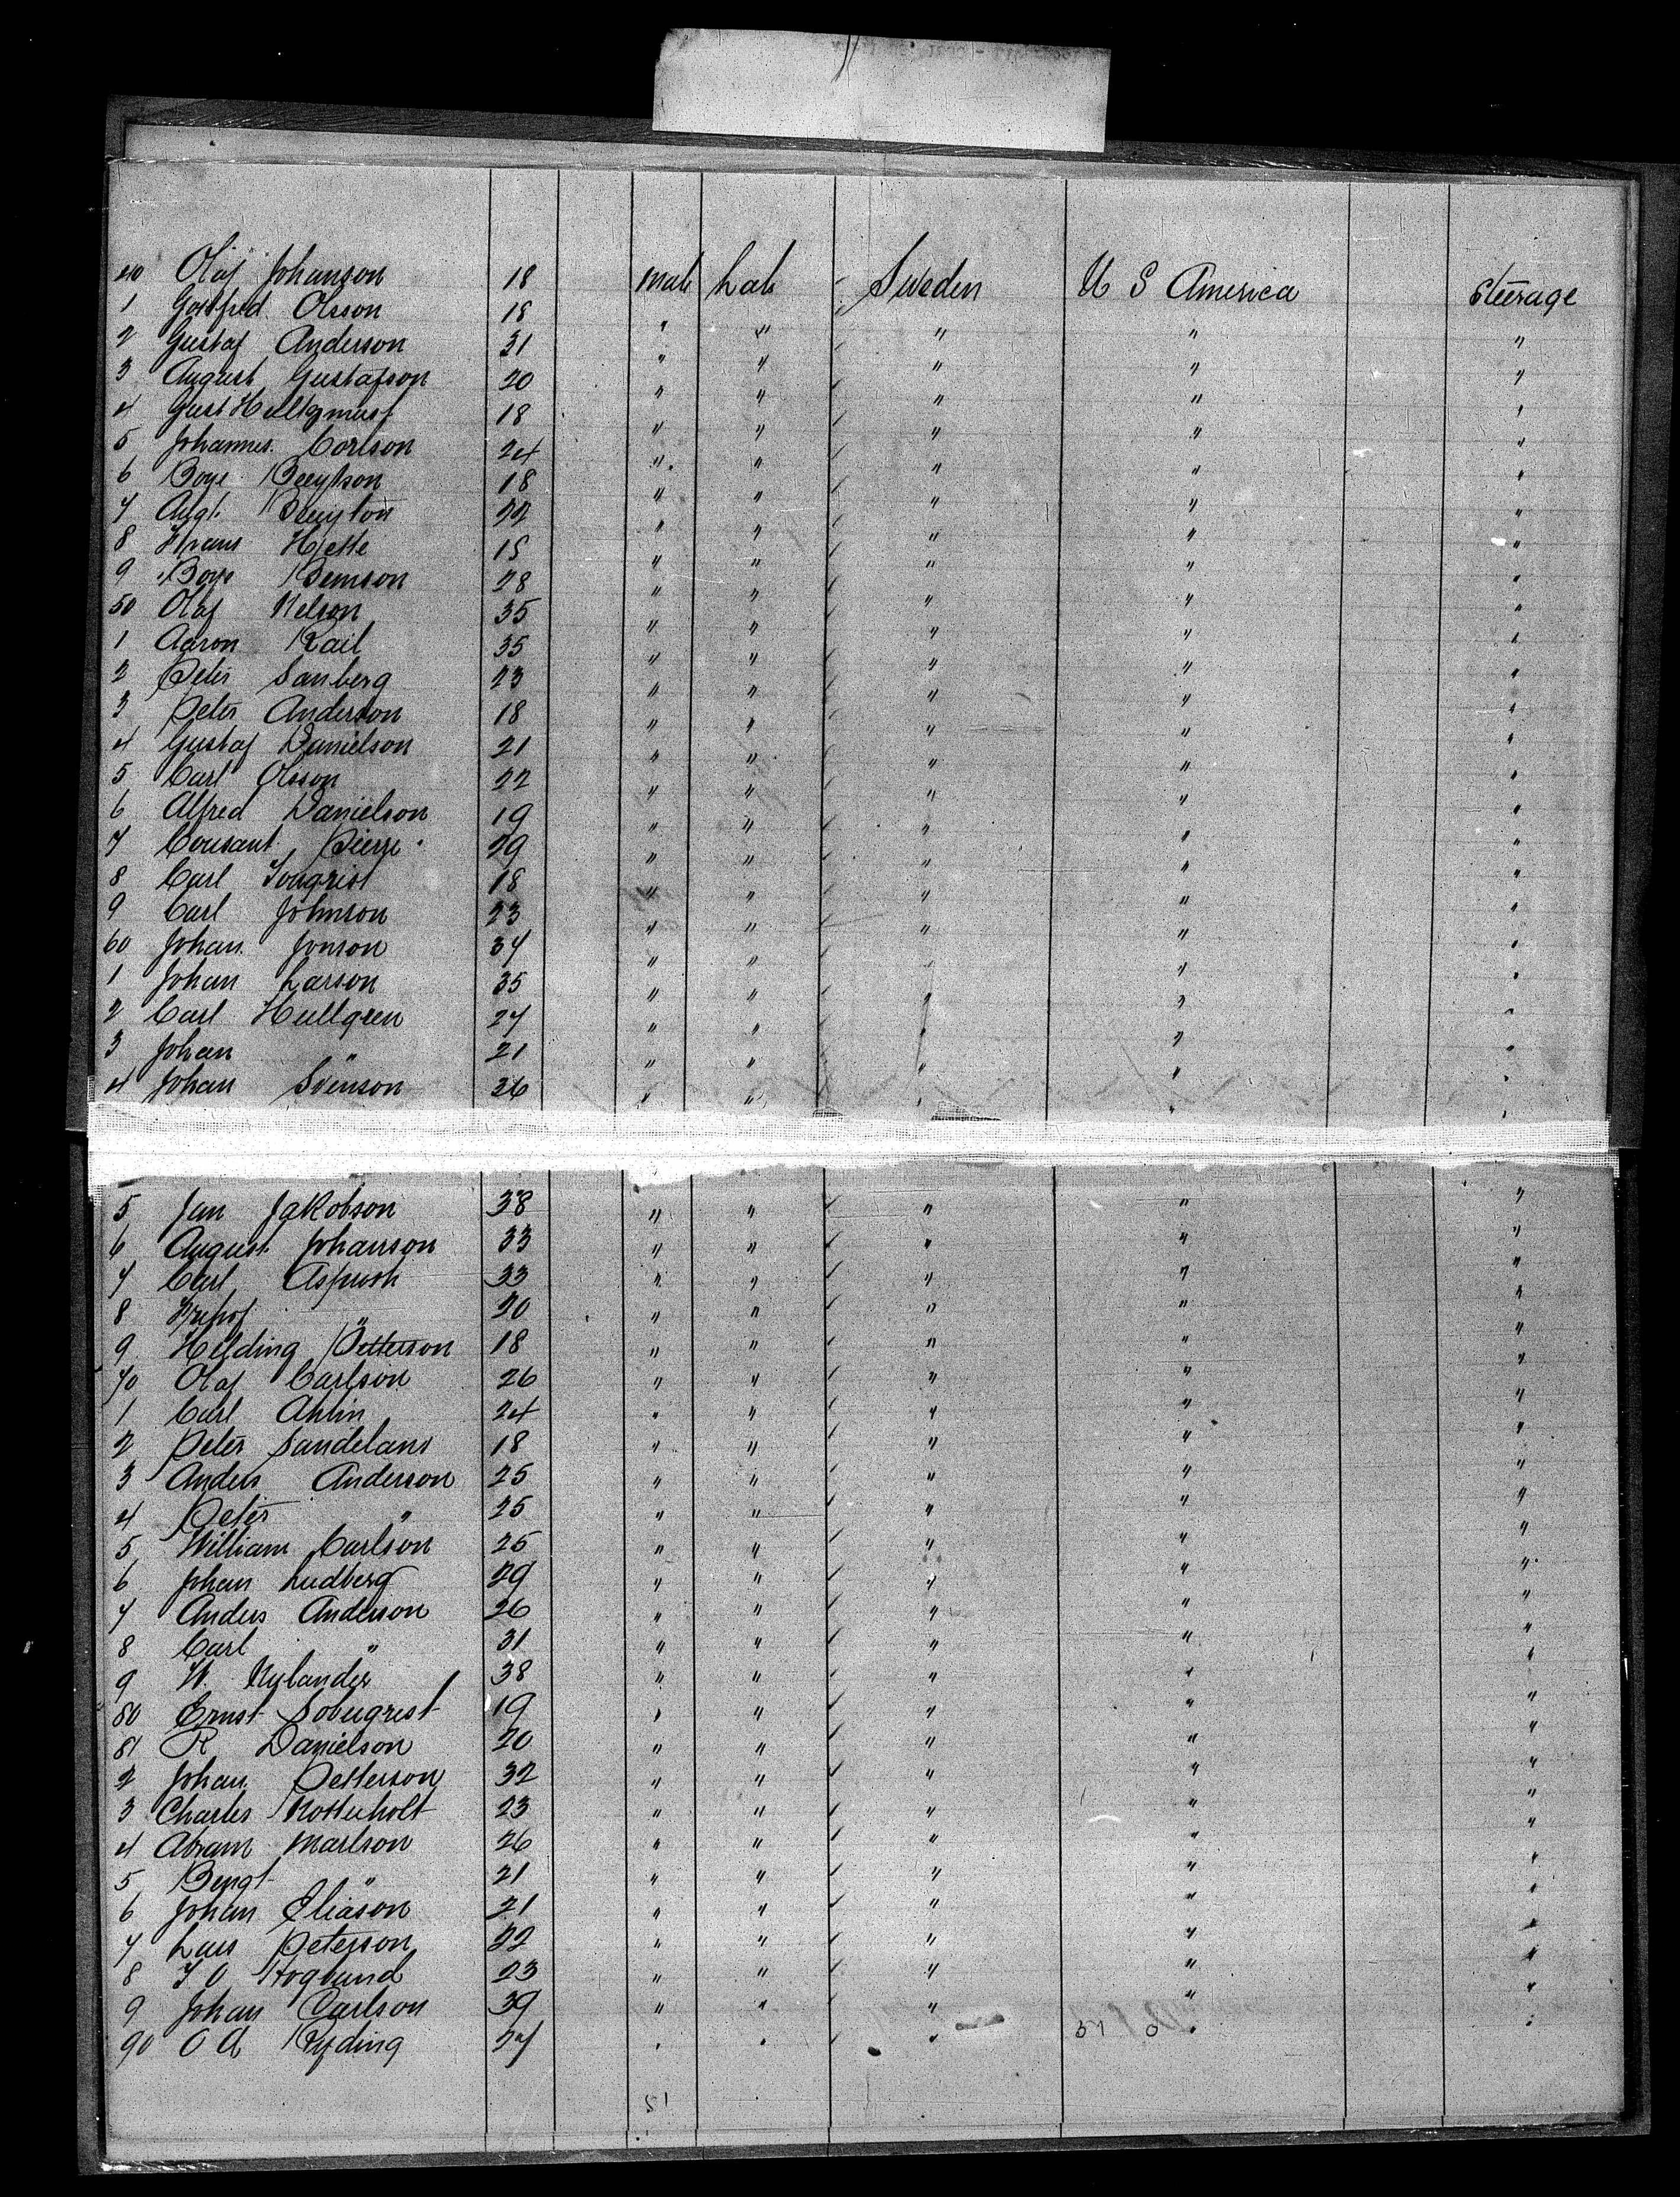 40 Olaf Johanson 18 male Lab Sweden U S America Steerage
1 Gottfred Olsson 18 " " " " "
2 Gustaf Anderson 31 " " " " "
3 August Gustafson 20 " " " " "
4 Gust 18 " " " " "
5 Johannes Corlson 24 " " " " "
6 Boye 18 " " " " "
7 Augt. 22 " " " " "
8 Frans 18 " " " " "
9 Boye 28 " " " " "
50 Olaf Nelson 35 " " " " "
1 Aaron Rail 35 " " " " "
2 Peter Sanberg 23 " " " " "
3 Peter Anderson 18 " " " " "
4 Gustaf Danielson 21 " " " " "
5 Carl Olsson 22 " " " " "
6 Alfred Danielson 19 " " " " "
7 Pierre 29 " " " " "
8 Carl 18 " " " " "
9 Carl Johnson 23 " " " " "
60 Johan Jonson 37 " " " " "
1 Johan Larson 35 " " " " "
2 Carl Hullgren 27 " " " " "
3 Johan " 21 " " " " "
4 Johan Svenson 26 " " " " "
5 Jan Jakobson 38 " " " " "
6 August Johanson 33 " " " " "
7 Carl 33 " " " " "
8 " 20 " " " " "
9 Helding Petterson 18 " " " " "
70 Olaf Carlson 26 " " " " "
1 Carl Ahlin 24 " " " " "
2 Peter Sandelans 18 " " " " "
3 Anders Anderson 25 " " " " "
4 Peter " 25 " " " " "
5 William Carlson 25 " " " " "
6 Johan Ludberg 29 " " " " "
7 Anders Anderson 26 " " " " "
8 Carl " 31 " " " " "
9 W. Nylander 38 " " " " "
80 Ernst 19 " " " " "
81 R Danielson 20 " " " " "
2 Johan Petterson 32 " " " " "
3 Charles 23 " " " " "
4 Abram Marlson 26 " " " " "
5 Bengt " 21 " " " " "
6 Johan Eliason 21 " " " " "
7 Lars Peterson 22 " " " " "
8 Hoglund 23 " " " " "
9 Johan Carlson 39 " " " " "
90 O A Ryding 27 " " " " "